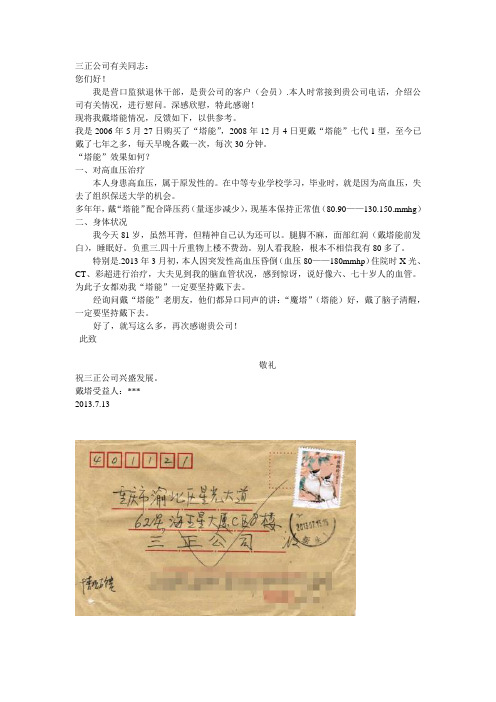 三正公司有关同志：
您们好！
我是营口监狱退休干部，是贵公司的客户（会员）.本人时常接到贵公司电话，介绍公
司有关情况，进行慰问。深感欣慰，特此感谢！
现将我戴塔能情况，反馈如下，以供参考。
我是 2006 年 5 月 27 日购买了“塔能”，2008 年 12 月 4 日更戴“塔能”七代 1 型，至今已
戴了七年之多，每天早晚各戴一次，每次 30 分钟。
“塔能”效果如何？
一、对高血压治疗
本人身患高血压，属于原发性的。在中等专业学校学习，毕业时，就是因为高血压，失
去了组织保送大学的机会。
多年年，戴“塔能”配合降压药（量逐步减少），现基本保持正常值（80.90——130.150.mmhg）
二、身体状况
我今天 81 岁，虽然耳背，但精神自己认为还可以。腿脚不麻，面部红润（戴塔能前发
白），睡眠好。负重三.四十斤重物上楼不费劲。别人看我脸，根本不相信我有 80 多了。
特别是.2013 年 3 月初，本人因突发性高血压昏倒（血压 80——180mmhp）住院时 X 光、
CT、彩超进行治疗，大夫见到我的脑血管状况，感到惊讶，说好像六、七十岁人的血管。
为此子女都劝我“塔能”一定要坚持戴下去。
经询问戴“塔能”老朋友，他们都异口同声的讲：“魔塔”（塔能）好，戴了脑子清醒，
一定要坚持戴下去。
好了，就写这么多，再次感谢贵公司！
此致
敬礼
祝三正公司兴盛发展。
戴塔受益人：***
2013.7.13
401121
重庆市渝北区星光大道
62号海王星大厦C区8楼
三正公司 收